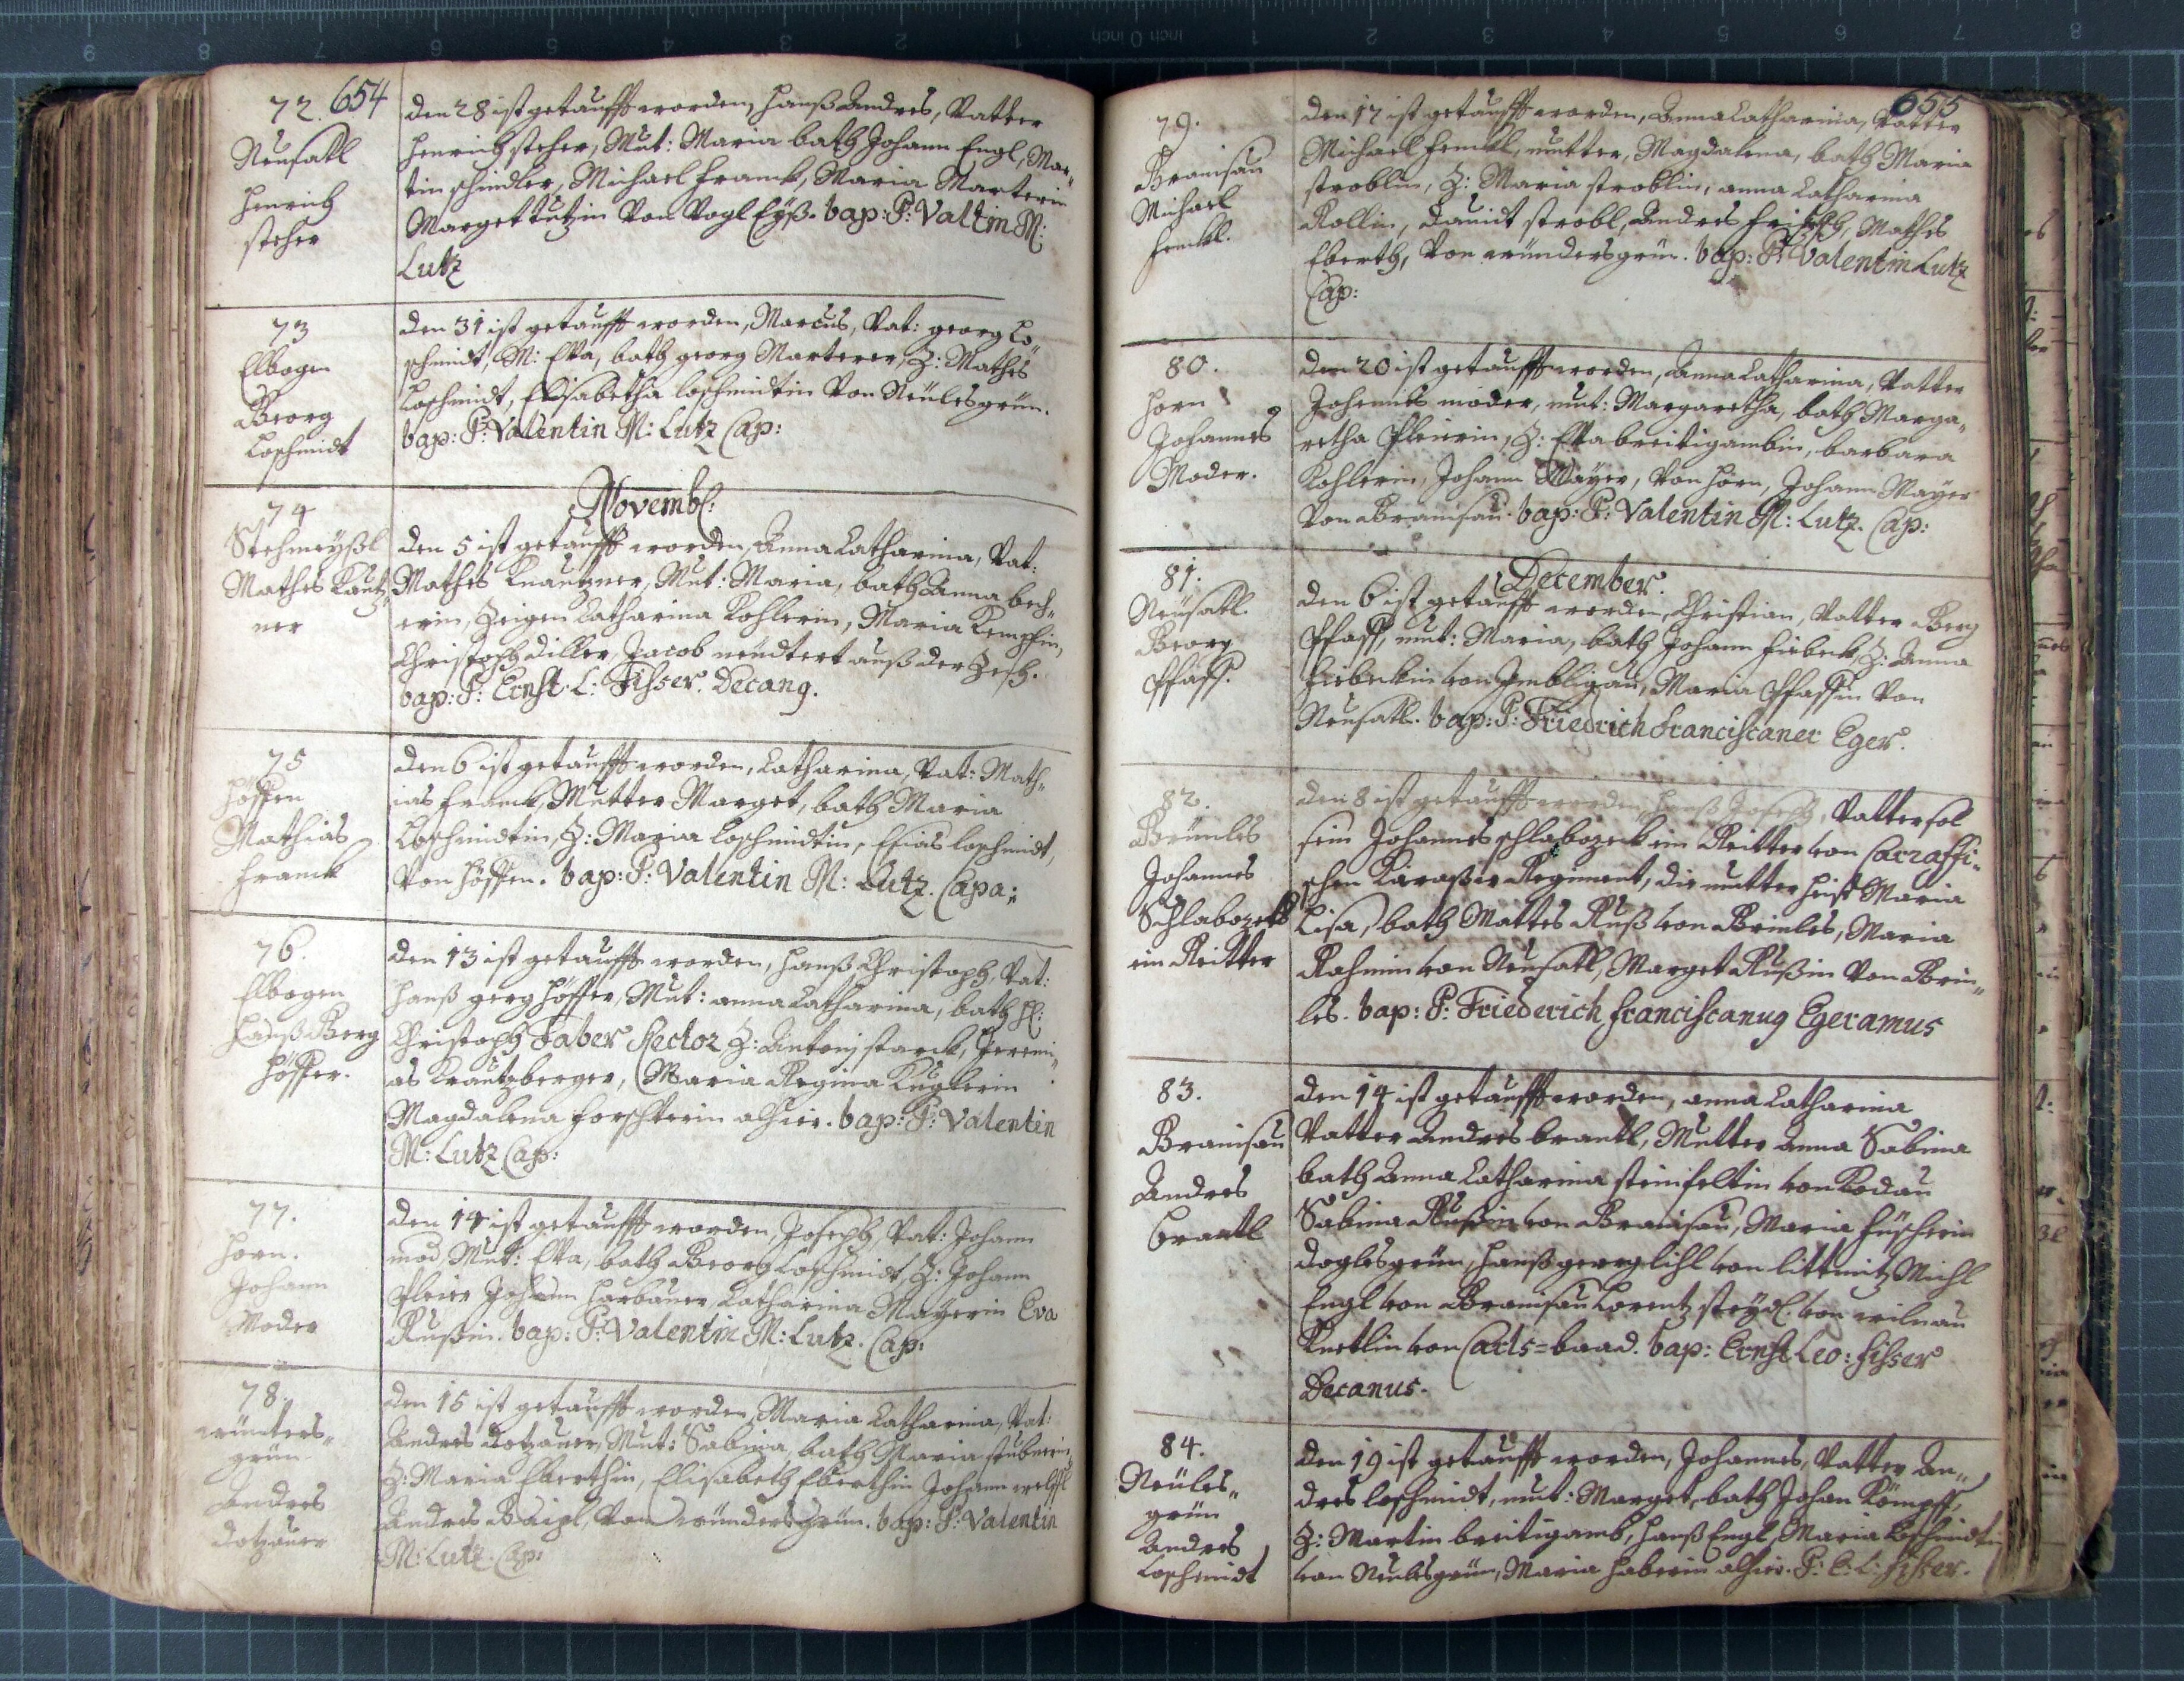 654
72.
Neusatl
Henrich
steher
den 28 ist getaufft worden, Hanß Andres, Vatter
Henrich steher, Mut: Maria bath Johann Engl, Mar„
tin schindler, Michael Franck, Maria Marterin
Marget tutzin Von Vogl Eyß. bap: P: Valtin M:
Lutz
73
Elbogen
Georg
Loschmidt
den 31 ist getaufft worden, Marcus, Vat: georg Lo„
schmidt, M: Eva, bath georg Marterer, Z: Mathes
Loschmidt, Elisabetha loschmidtin Von Neulesgrün.
bap: P: Valentin M: Lutz Cap:
Novemb:
74
Stehmeyßl
Mathes Kautz„
ner
den 5 ist getaufft worden, Anna Catharina, Vat:
Mathes Knautzner, Mut: Maria, bath Anna bech„
erin, Zeigen Catharina Kohlerin, Maria Kempfin,
Christoph diller, Jacob auß der Zech.
bap: P: Ernst. L: Fisser. Decang.
75
Höffen
Mathias
Franck
den 6 ist getaufft worden, Catharina, Vat: Math„
ias Franck, Mutter Marget, bath Maria
Loschmidtin, Z: Maria loschmidtin, Elias loschmidt,
Von Höffen. bap: P: Valentin M: Lutz. Capa:
76.
Elbogen
Hanß Georg
Höffer.
den 13 ist getaufft worden, Hanß Christoph, Vat:
Hanß gerg Höffer, Mut: anna Catharina, bath H:
Christoph Faber Rector Z: Antonj starck, Jeremi„
as Krautzberger, Maria Regina Kuglerin
Magdalena forschterin alhier. bap: P: Valentin
M: Lutz Cap:
77.
Horn.
Johann
Moder
den 14 ist getaufft worden, Joseph, Vat: Johann
mod, Mut: Eva, bath Georg Loschmidt, Z: Johann
Pleier Johann Harbauer, Catharina Mayerin Eva
Rußin. bap: P: Valentin M: Lutz. Cap:
78.
wünters„
grün
Andres
dotzauer
den 15 ist getaufft worden, Maria Catharina, Vat:
Andres dotzauer, Mut: Sabina, bath Maria stubnerin,
Z: Maria Eberthin, Elisabeth Eberthin Johann
Andres Von wündersgrün. bap: P: Valentin
M: Lutz. Cap:
655
79.
Branisau
Michael
Henkl.
den 17 ist getaufft worden, Anna Catharina, Vatter
Michael Henkl, mutter, Magdalena, bath Maria
stroblin, Z: Maria stroblin, anna Catharina
Rollin, Davidt strobl, Andres Mathes
Eberth, Von wündersgrün. bap: P: Valentin Lutz
Cap:
80.
Horn
Johannes
Moder.
den 20 ist getaufft worden, Anna Catharina, Vatter
Johannes moder, mut: Margaretha, bath Marga„
retha Pleierin, Z: Eva breitigambin, barbara
Kohlerin, Johann Mayer, Von Horn, Johann Mayer
Von Branisau. bap: P: Valentin M: Lutz. Cap:
December.
81.
Neusatl.
Georg
Pfaff.
den 6 ist getaufft worden, Christian, Vatter Georg
Pfaff, mut: Maria, bath Johann Z: Anna
von Maria Pfaffin Von
Neusatl. bap: P: Friedrich franciscaner Eger.
82.
Grünles
Johannes
Schlabozek
ein Reitter
den 8 ist getaufft worden, Hanß Joseph, Vatter sol
sein Johannes schlabozek ein Reitter von Carraffi„
schen Kiraßir Regiment, die mutter heist Maria
Lisa, bath Mattes Ruß von Grinles, Maria
Rahmin von Neusatl, Marget Rußin Von Grin„
les. bap: P: Friederich franciscanug Egeramus
83.
Braniсau
Andres
brantl
den 14 ist getaufft worden, anna Catharina
Vatter Andres brantl, Mutter anna Sabina
bath Anna Catharina steinfeltin von Kodau
Sabina Rußin von Braniсau, Maria Füscherin
doglesgrün, Hanß georg lihl von littmitz Michl
Engl von Braniсau Lorentz steydl von wilnau
von Carls=baad. bap: Ernst Leo: fisser
Decanus.
84.
Neules„
grün
Andres
Loschmidt
den 19 ist getaufft worden, Johannes, Vatter An„
dres loschmidt, mut: Marget, bath Johan Kömpff,
Z: Martin breitigamb, Hanß Engl, Maria Loschmidtin
von Neulesgrün, Maria Haberin alhier. P: E: L: fisser.